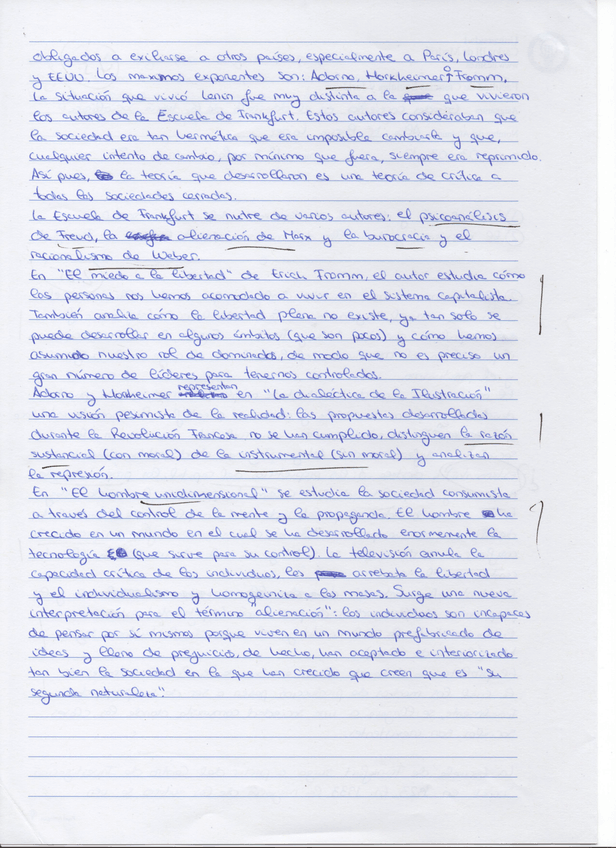 obligados a exiliarse a otros países, especialmente a París, Londres
y EEUU. Los maximos exponentes son: Adorno, Horkheimer y Fromm.
La situación que vivió Lenin fue muy distinta a la que vivieron
los autores de la Escuela de Frankfurt. Estos autores consideraban que
la sociedad era tan hermética que era imposible cambiarla y que,
cualquier intento de cambio, por mínimo que fuera, siempre era reprimido.
Así pues, la teoría que desarrollaron es una teoría de crítica a
todas las sociedades cerradas.
La Escuela de Frankfurt se nutre de varios autores: el psicoanálisis
de Freud, la alienación de Marx y la burocracia y el
racionalismo de Weber.
En "El miedo a la libertad" de Erich Fromm, el autor estudia cómo
las personas nos hemos acomodado a vivir en el sistema capitalista.
También analiza cómo la libertad plena no existe, ya tan solo se
puede desarrollar en algunos ámbitos (que son pocos) y cómo hemos
asumido nuestro rol de dominados, de modo que no es preciso un
gran número de líderes para tenernos controlados.
Adorno y Horkheimer representan en "La dialéctica de la Ilustración"
una visión pesimista de la realidad: las propuestas desarrolladas
durante la Revolución Francesa no se han cumplido, distinguen la razón
sustancial (con moral) de la instrumental (sin moral) y analizan
la represión.
En "El hombre unidimensional" se estudia la sociedad consumista
a través del control de la mente y la propaganda. El hombre ha
crecido en un mundo en el cual se ha desarrollado enormemente la
tecnología (que sirve para su control). La televisión anula la
capacidad crítica de los individuos, les arrebata la libertad
y el individualismo y homogeiniza a las masas. Surge una nueva
interpretación para el término "alienación": los individuos son incapaces
de pensar por sí mismos porque viven en un mundo prefabricado de
ideas y lleno de prejuicios, de hecho, han aceptado e interiorizado
tan bien la sociedad en la que han crecido que creen que es "su
segunda naturaleza".